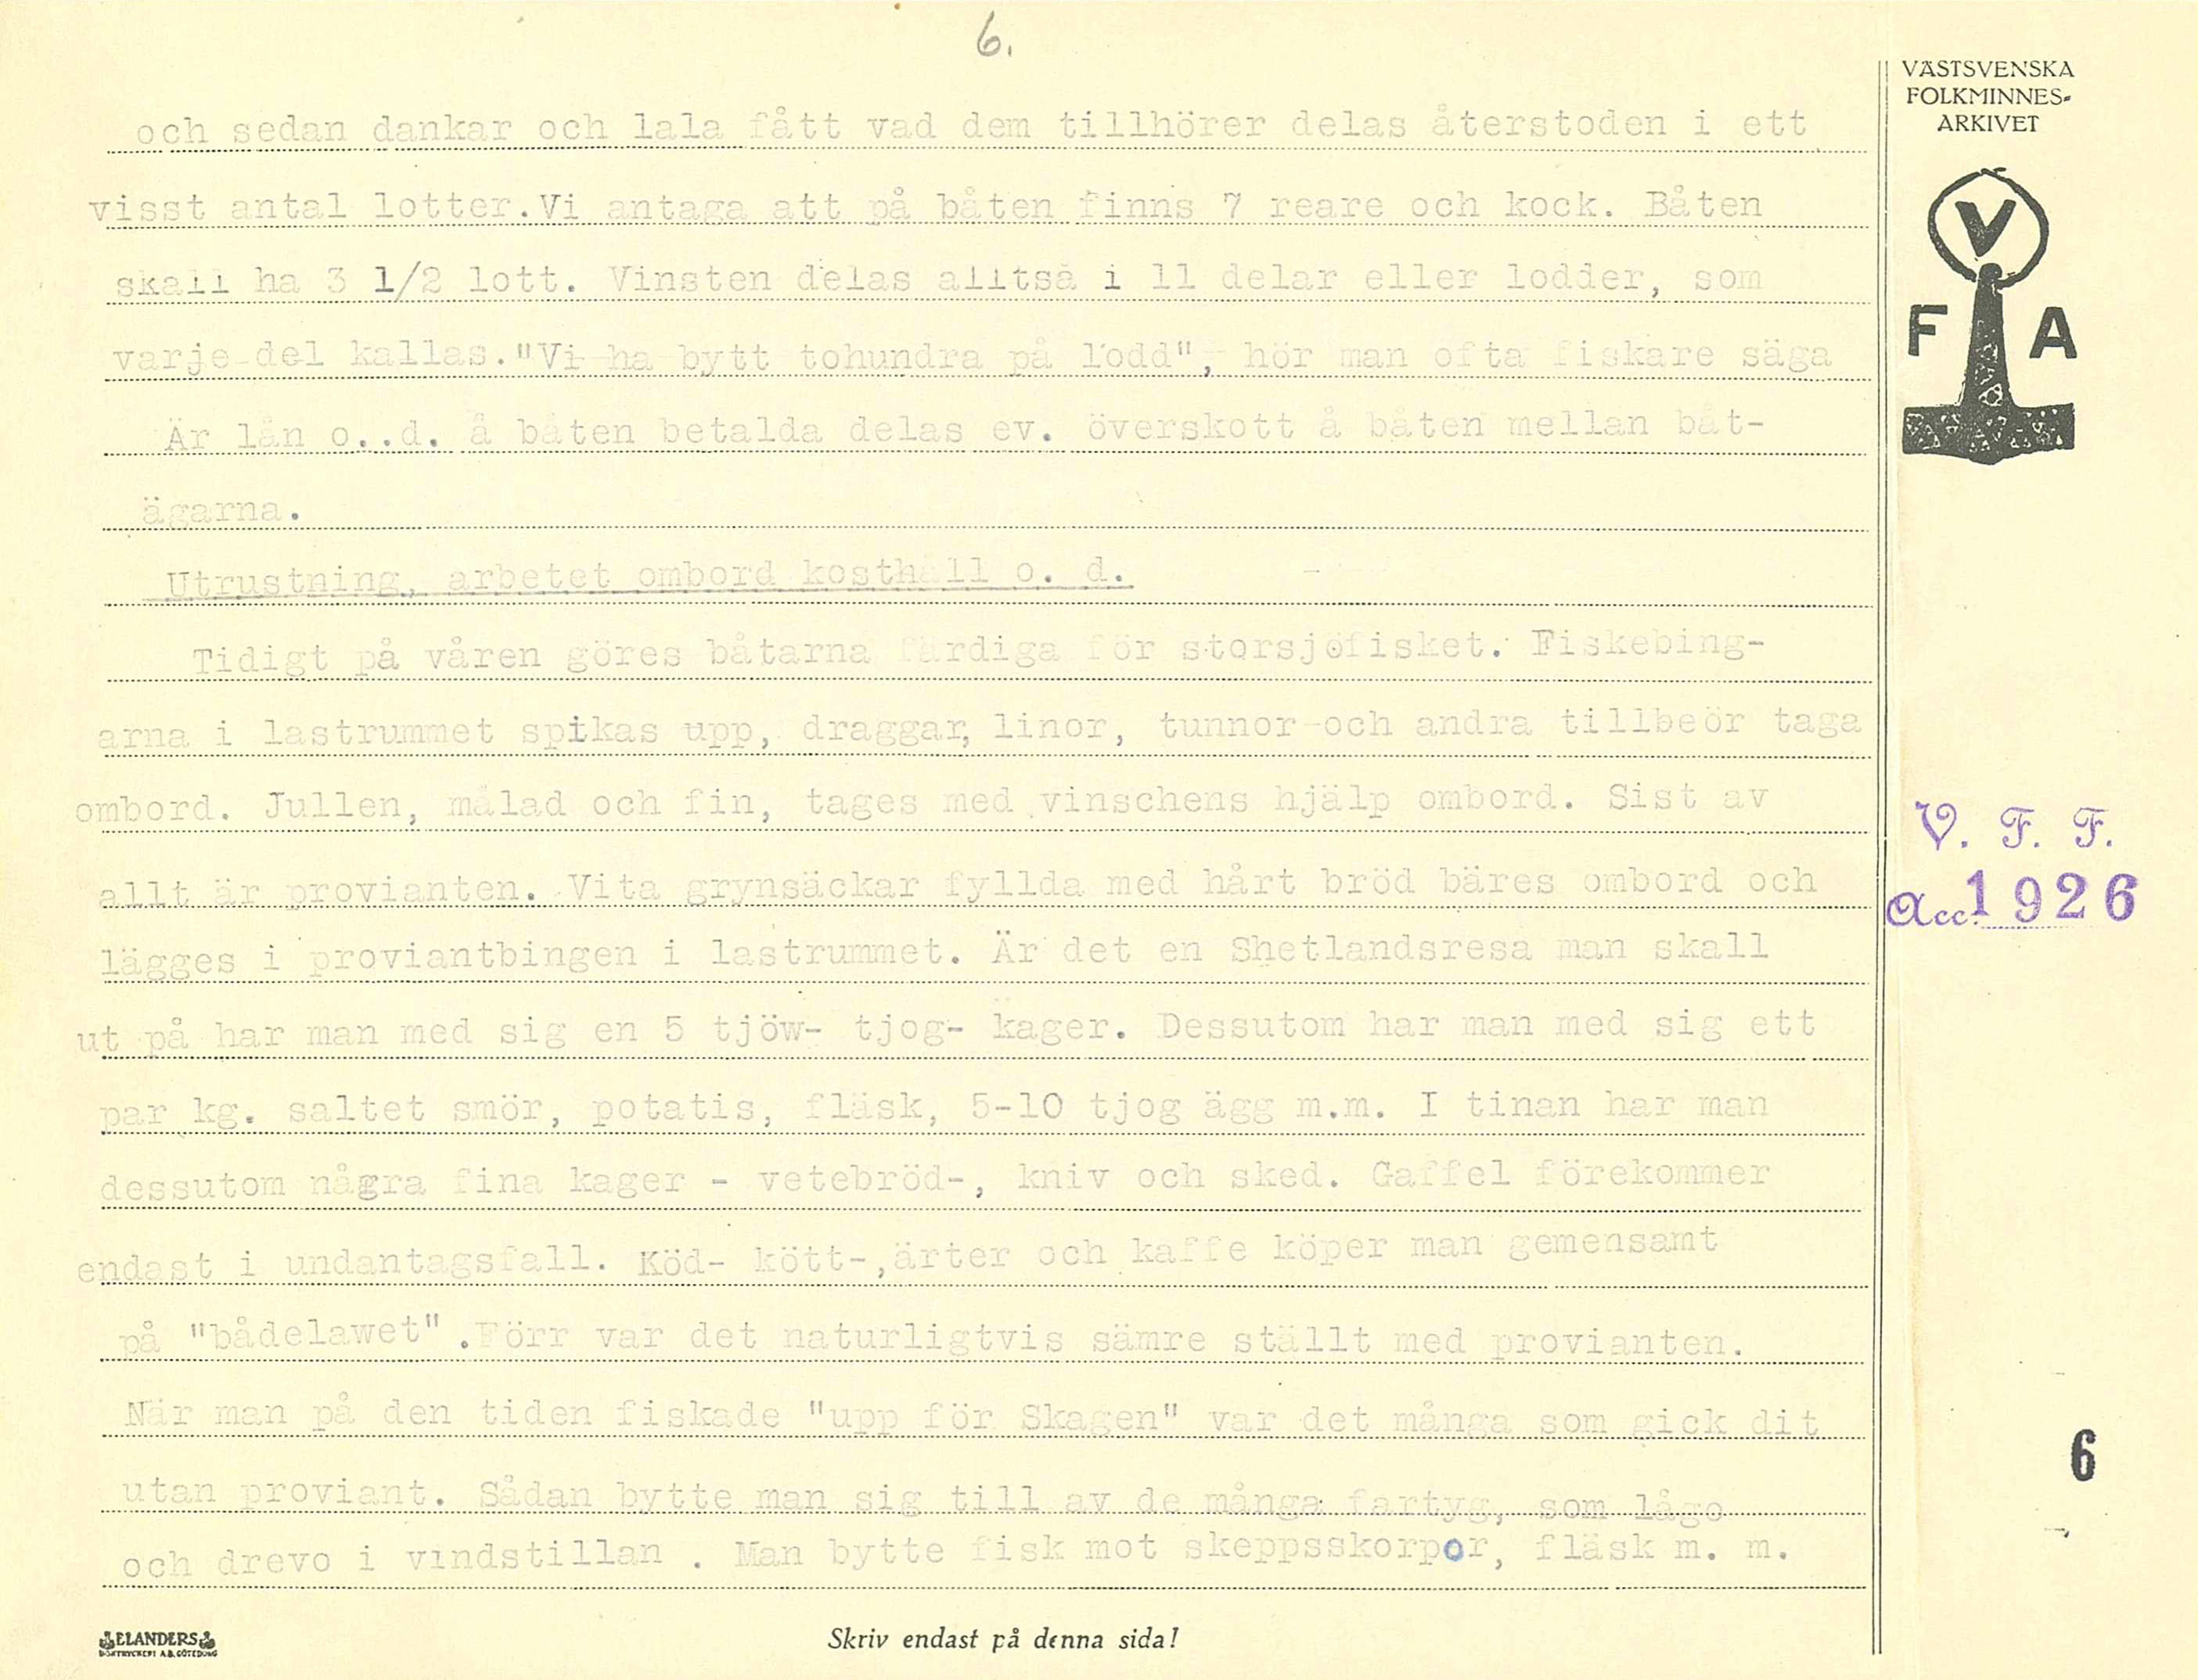 6.
och sedan dankar och lala fått vad dem tillhörer delas återstoden i ett
visst antal lotter.Vi antaga att på båten finns 7 reare och kock. Båten
skall ha 3 1/2 lott. Vinsten delas alltså i 11 delar eller lodder, som
varje del kallas."Vi ha bytt tohundra på lodd", hör man ofta fiskare säga
Är lån o..d. å båten betalda delas ev. överskott å båten mellan båt-
ägarna.
Utrustning, arbetet ombord kosthåll o. d.
Tidigt på våren göres båtarna färdiga för storsjöfisket. Fiskebing-
arna i lastrummet spikas upp, draggar, linor, tunnor och andra tillbeör taga
ombord. Jullen, målad och fin, tages med vinschens hjälp ombord. Sist av
allt är provianten. Vita grynsäckar fyllda med hårt bröd bäres ombord och
lägges i proviantbingen i lastrummet. Är det en Shetlandsresa man skall
ut på har man med sig en 5 tjöw- tjog- kager. Dessutom har man med sig ett
par kg. saltet smör, potatis, fläsk, 5-10 tjog ägg m.m. I tinan har man
dessutom några fina kager - vetebröd-, kniv och sked. Gaffel förekommer
endast i undantagsfall. Köd- kött-,ärter och kaffe köper man gemensamt
på "bådelawet".Förr var det naturligtvis sämre ställt med provianten.
När man på den tiden fiskade "upp för Skagen" var det många som gick dit
utan proviant. Sådan bytte man sig till av de många fartyg, som lågo
och drevo i vindstillan . Man bytte fisk mot skeppsskorpor, fläsk m. m.
VÄSTSVENSKA
FOLKMINNES-
ARKIVET
V
F A
V. F. F.
Acc. 1926
6
ELANDERS
BOKTRYCKERI A.B. GÖTEBORG
Skriv endast på denna sida!